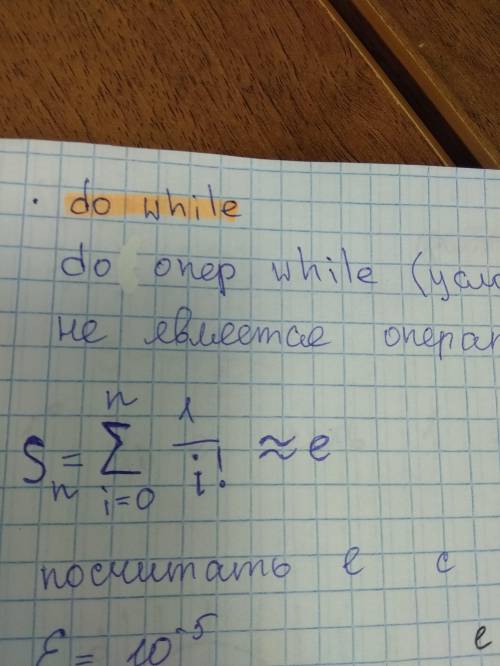 · do while
do опер while (усло
не является опера
Sₙ = ∑ⁿᵢ₌₀ 1/i! ≈ e
посчитать e с
ε = 10⁻⁵ e